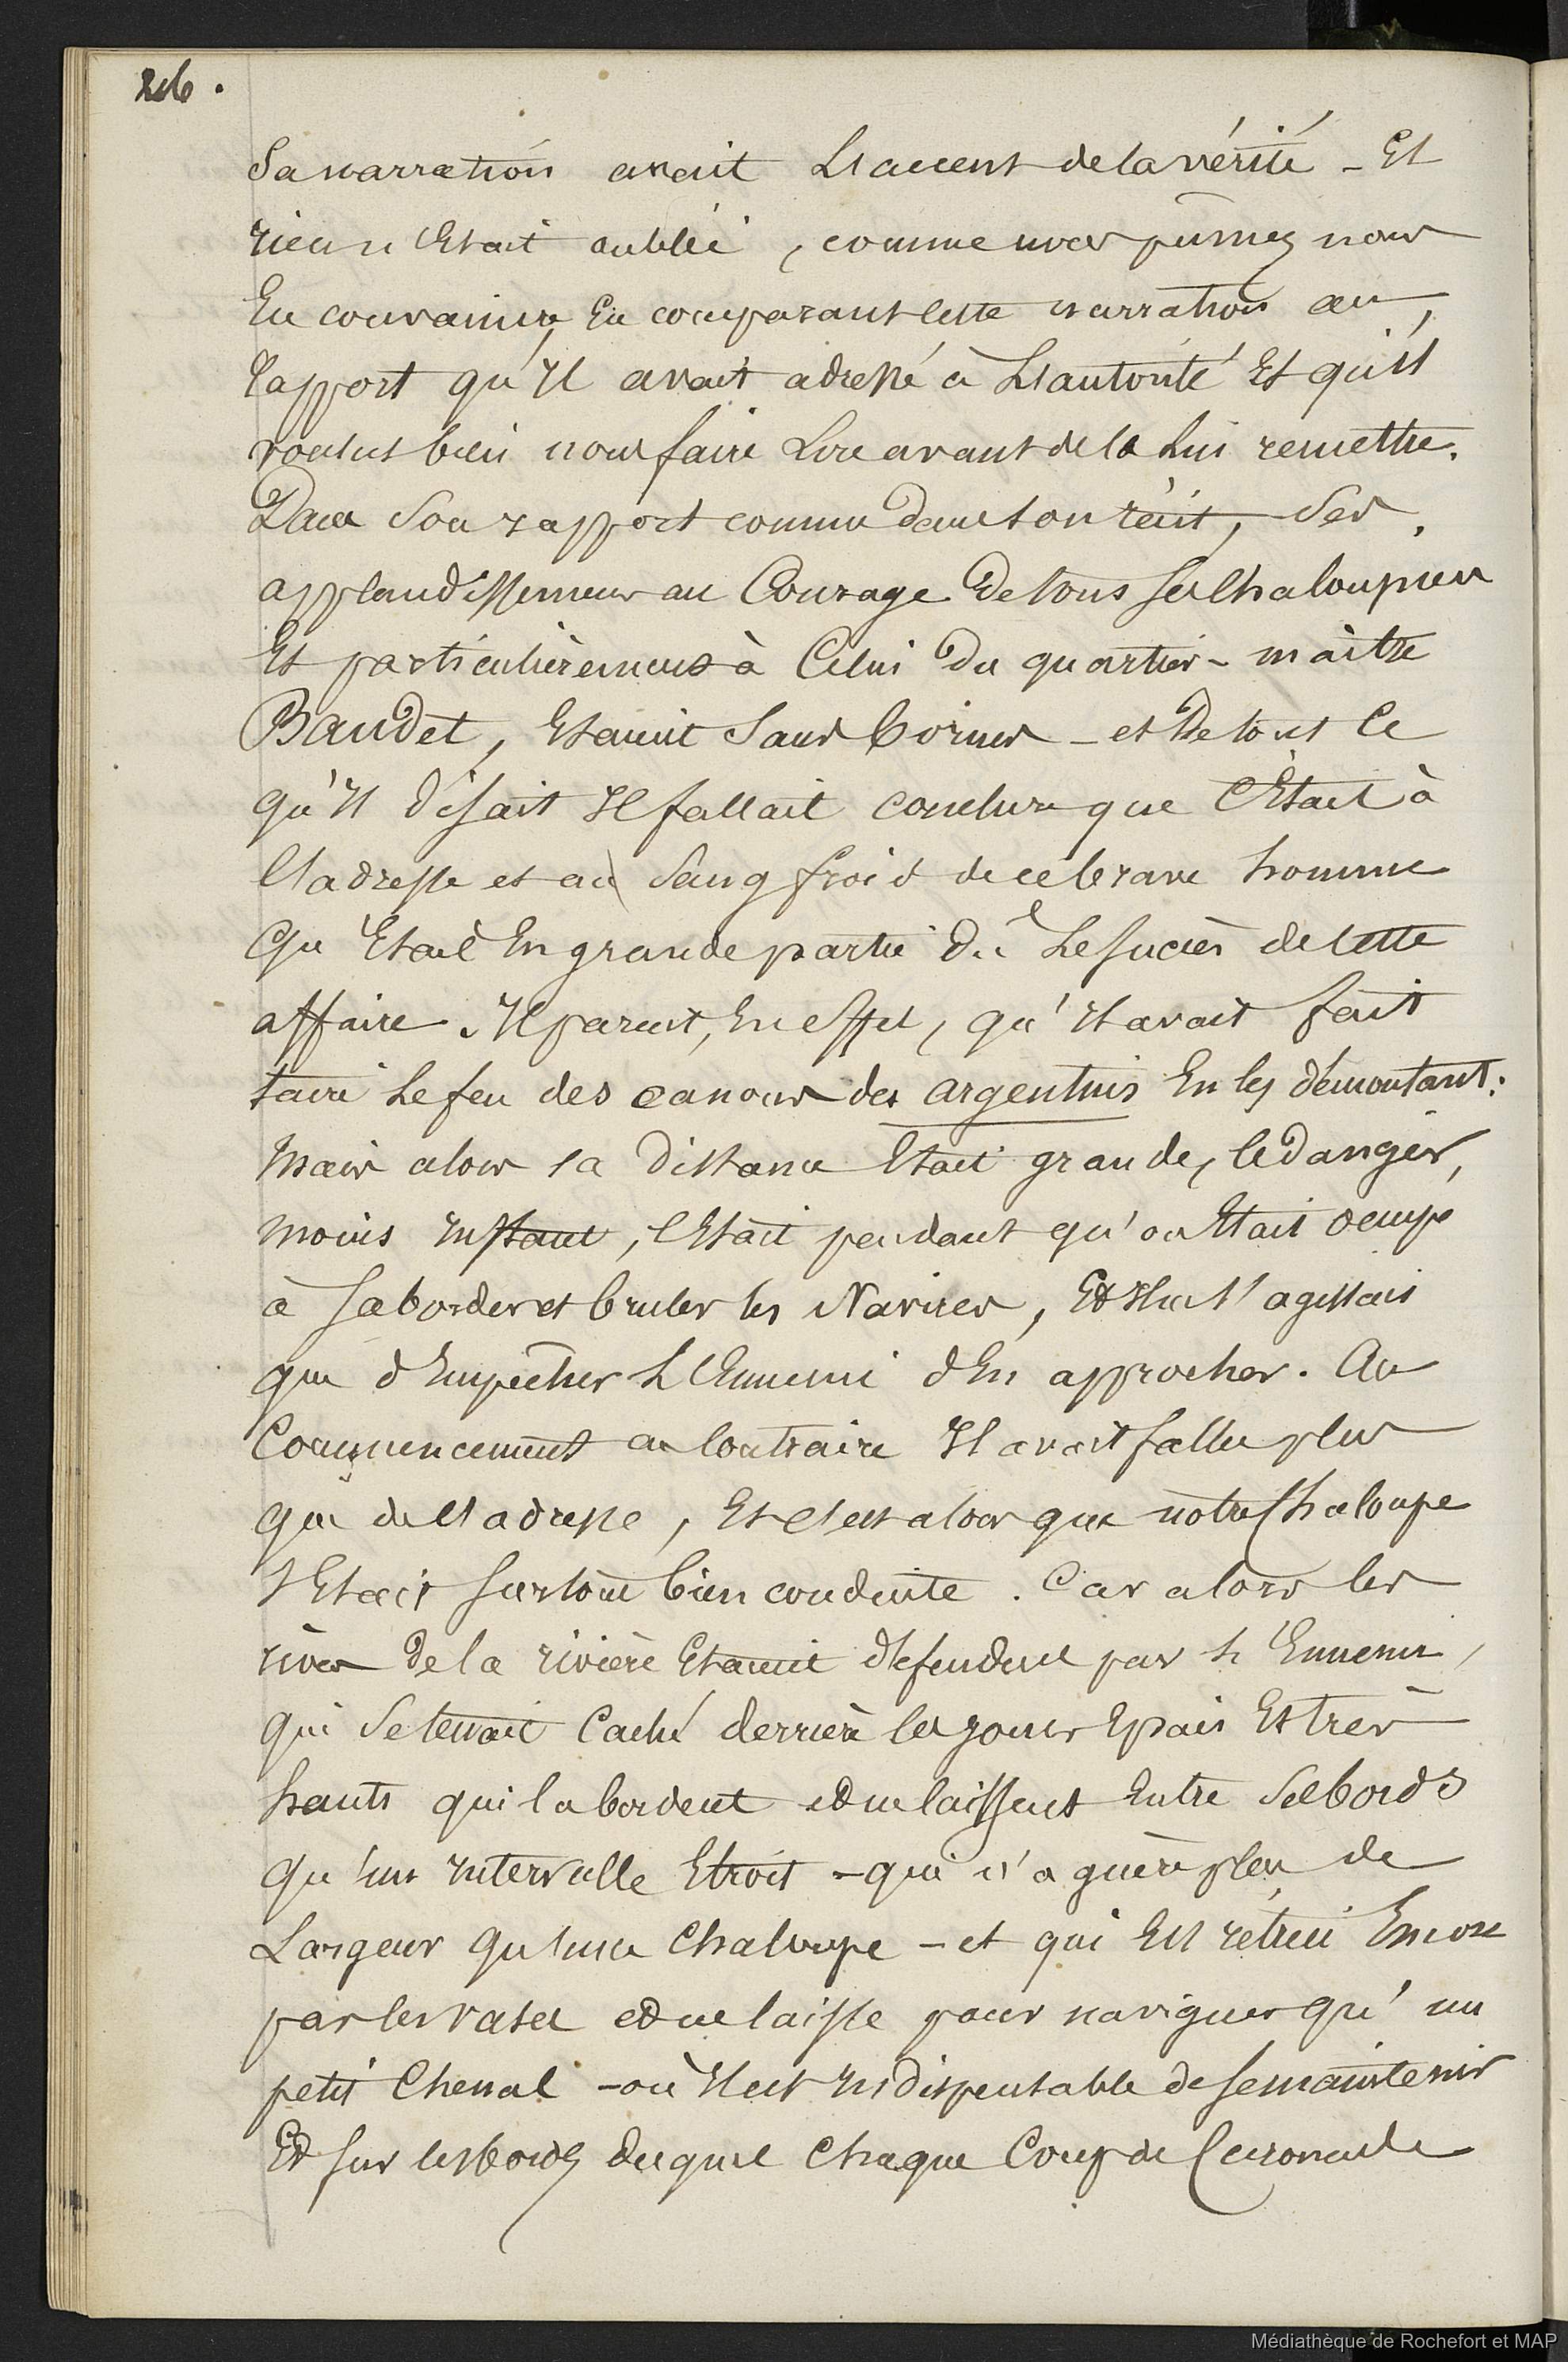 Sa narration avait L'accent de la vérité - Et
rien n'Etait oublié, comme nous pûmes nous
En convaincre, En comparant cette narration au
rapport qu'Il avait adressé à L'autorité Et qu'il
voulut bien nous faire Lire avant de le lui remettre.
Dans Son rapport comme dans son récit, Ses
applaudissemens au Courage De tous ses Chaloupiers
Et particulièrement à Celui Du quartier-maître
Baudet, Etaient Sans bornes - et De tout Ce
qu'Il disait Il fallait conclure que C'Etait à
L'adresse et au Sang froid de ce brave homme
Qu'Etait En grande partie dû Le succès de cette
affaire. Il parut, En effet, qu'Il avait fait
taire Le feu des canons des argentins En les démontant.
Mais alors la Distance Etait grande, le Danger,
moins instant, c'Etait pendant qu'on Etait occupé
à saborder et bruler les Navires, Et Il ne s'agissait
que d'Empêcher L'Ennemi d'En approcher. Au
Commencement au Contraire Il avait fallu plus
que de l'adresse, Et c'est alors que notre Chaloupe
s'Etait surtout bien conduite. Car alors les
rives De la rivière Etaient défendues par L'Ennemi,
qui Se tenait Caché derrière les joncs Epais Et très
hauts qui la bordent et ne laissent Entre Ses bords
Qu'un Intervalle Etroit - qui n'a guère plus de
Largeur Qu'une Chaloupe - et qui Est rétréci Encore
par les vases et ne laisse pour naviguer qu'un
petit Chenal - où Il est Indispensable de se maintenir
Et sur les bords duquel Chaque Coup de Caronade
Médiathèque de Rochefort et MAP